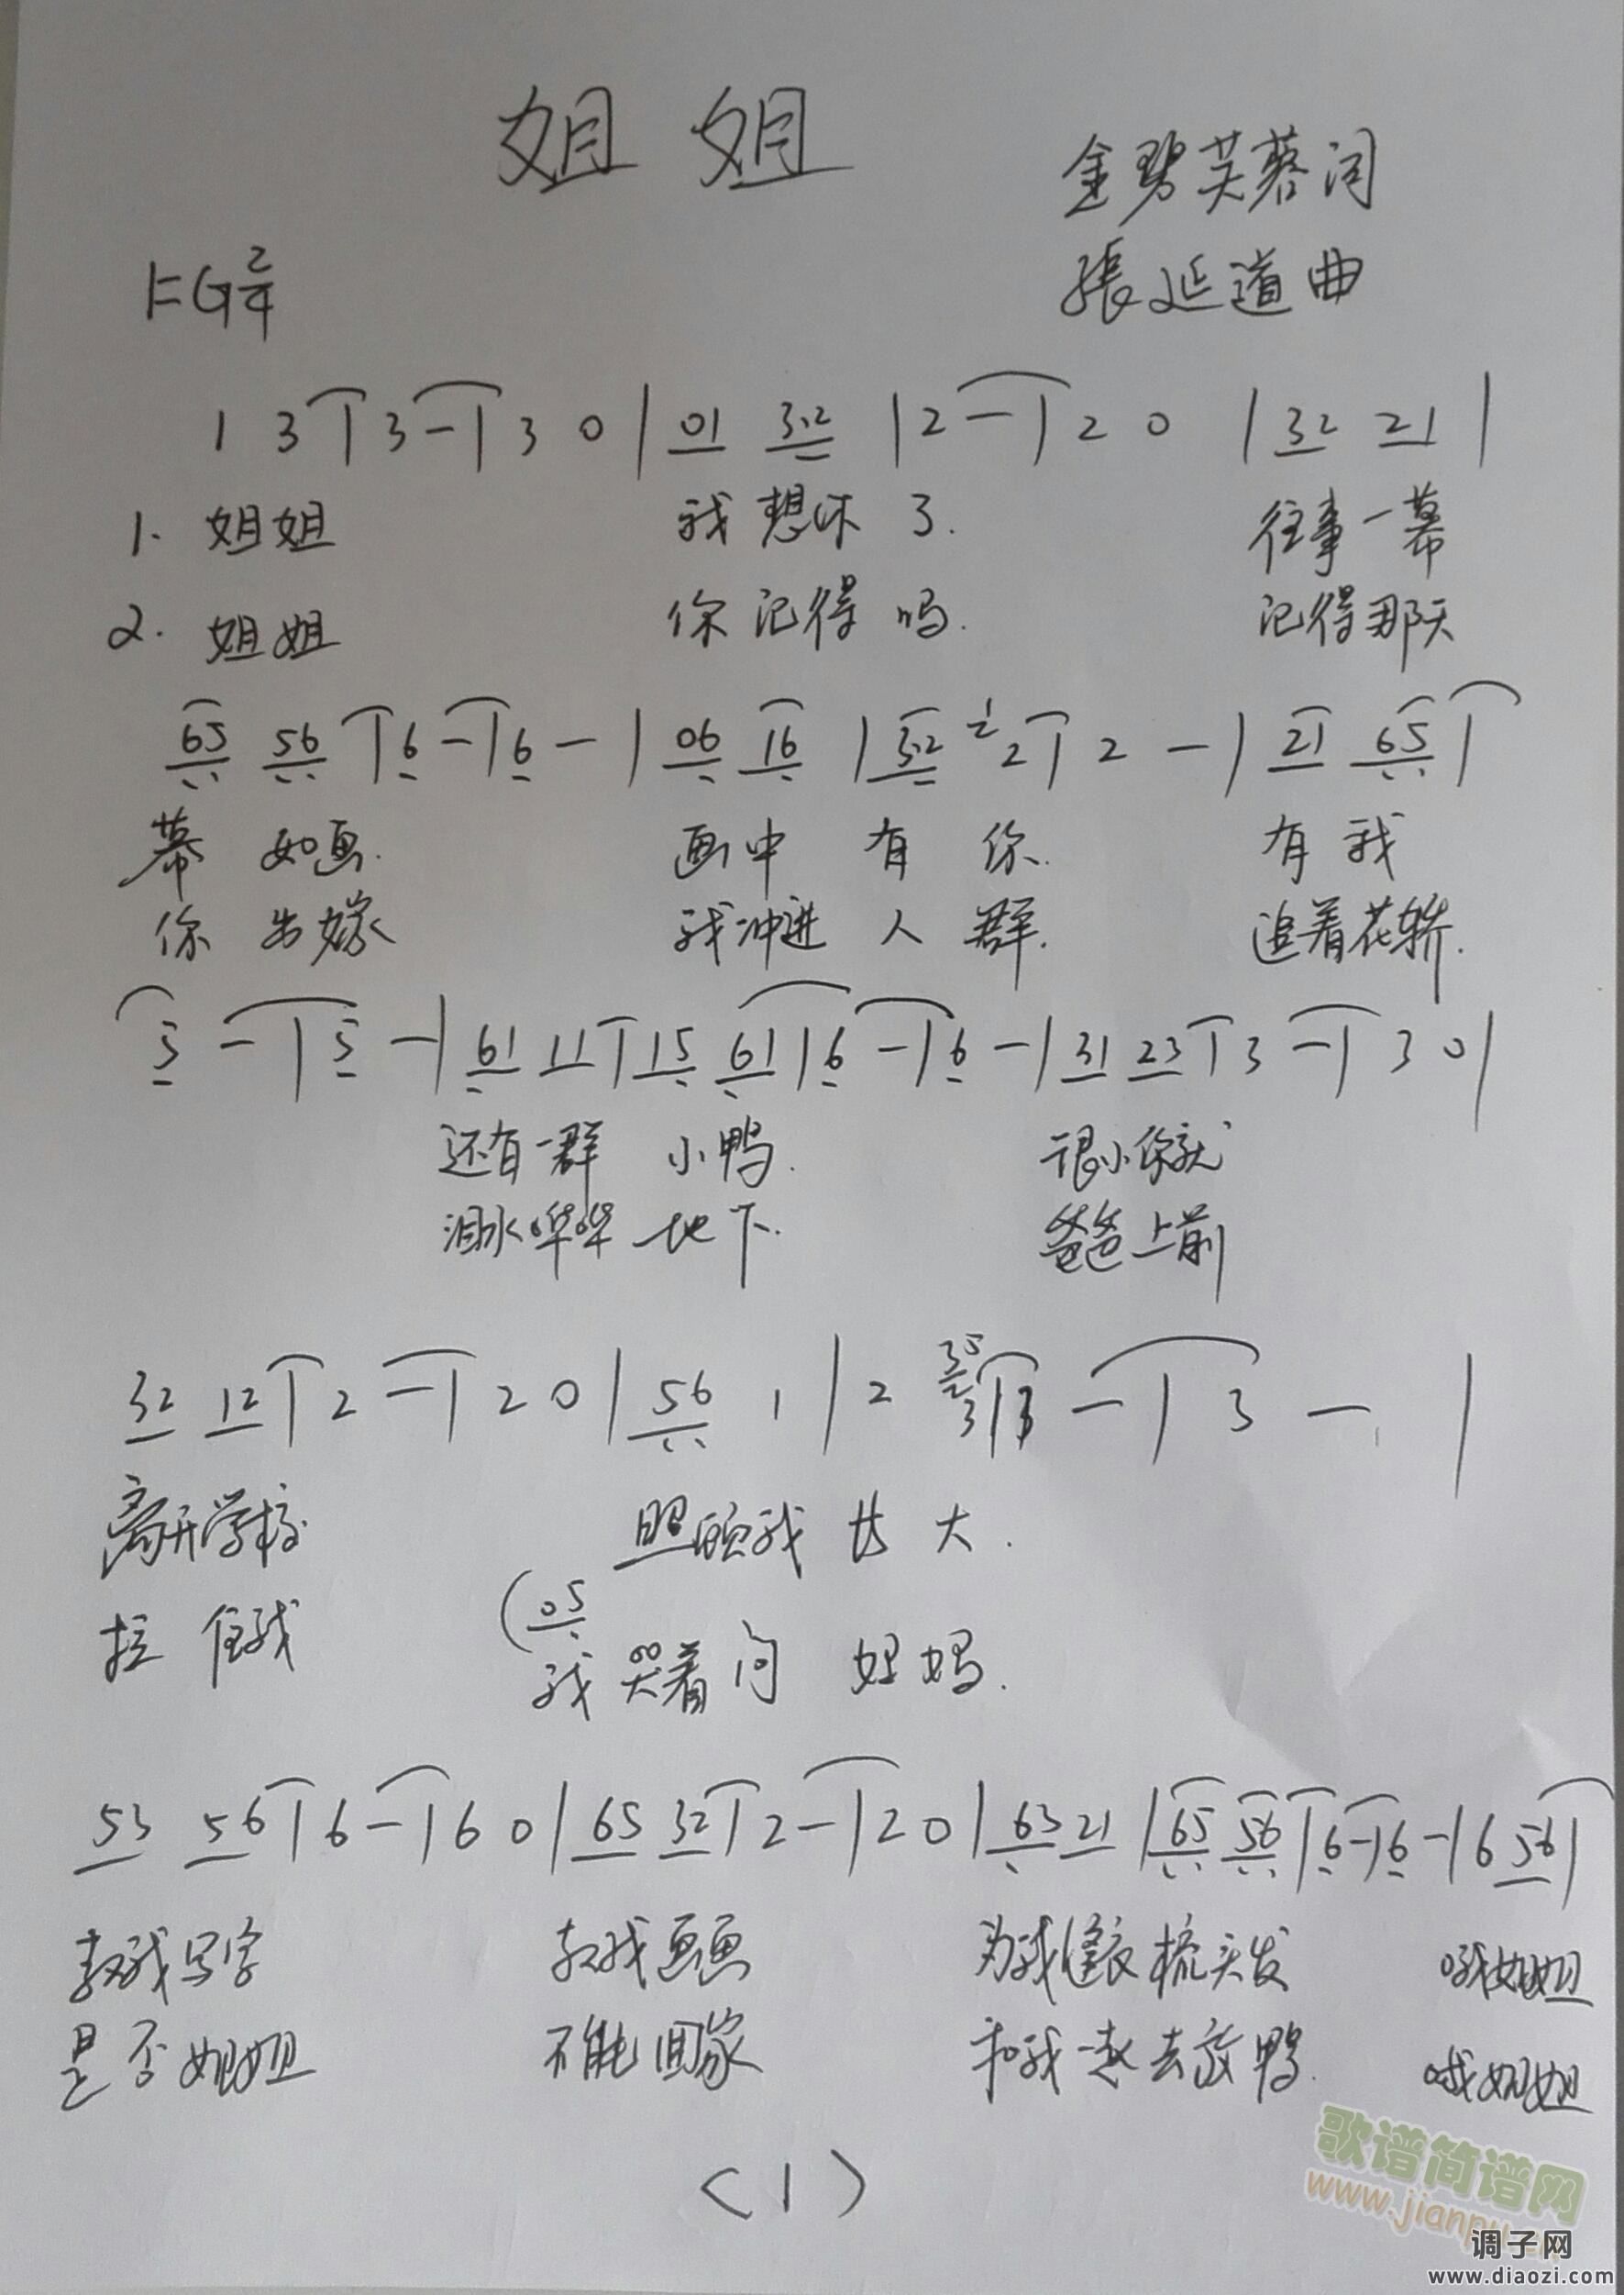 姐 姐
金碧芙蓉词
張延道曲
1=G 2/4
1 3 | 3 - | 3 0 | 01 3.2 | 2 - | 2 0 | 32 21 |
1. 姐姐 我想你了. 往事一幕
2. 姐姐 你记得吗. 记得那天
65 56 | 6 - | 6 - | 06 16 | 3.2 2 | 2 - | 21 65 |
幕 如画. 画中 有 你. 有 我
你 出嫁 我冲进 人 群. 追着花轿.
5 - | 5 - | 61 11 | 15 61 | 6 - | 6 - | 31 23 | 3 - | 3 0 |
还有一群 小鸭. 很小你就
泪水哗哗 地下. 爸爸上前
32 12 | 2 - | 2 0 | 56 1 | 2 35 3 | 3 - | 3 - |
离开学校 照顾我 长 大.
拉 住我 (05 我 哭着问 妈妈.
53 56 | 6 - | 6 0 | 65 32 | 2 - | 2 0 | 63 21 | 65 56 | 6 - | 6 - | 6 56 |
教我写字 教我画画 为我缝衣梳头发 哦姐姐
是否姐姐 不能回家 和我一起去放鸭. 哦姐姐
(1)
歌谱简谱网
www.jianpu.cn
调子网
www.diaozi.com